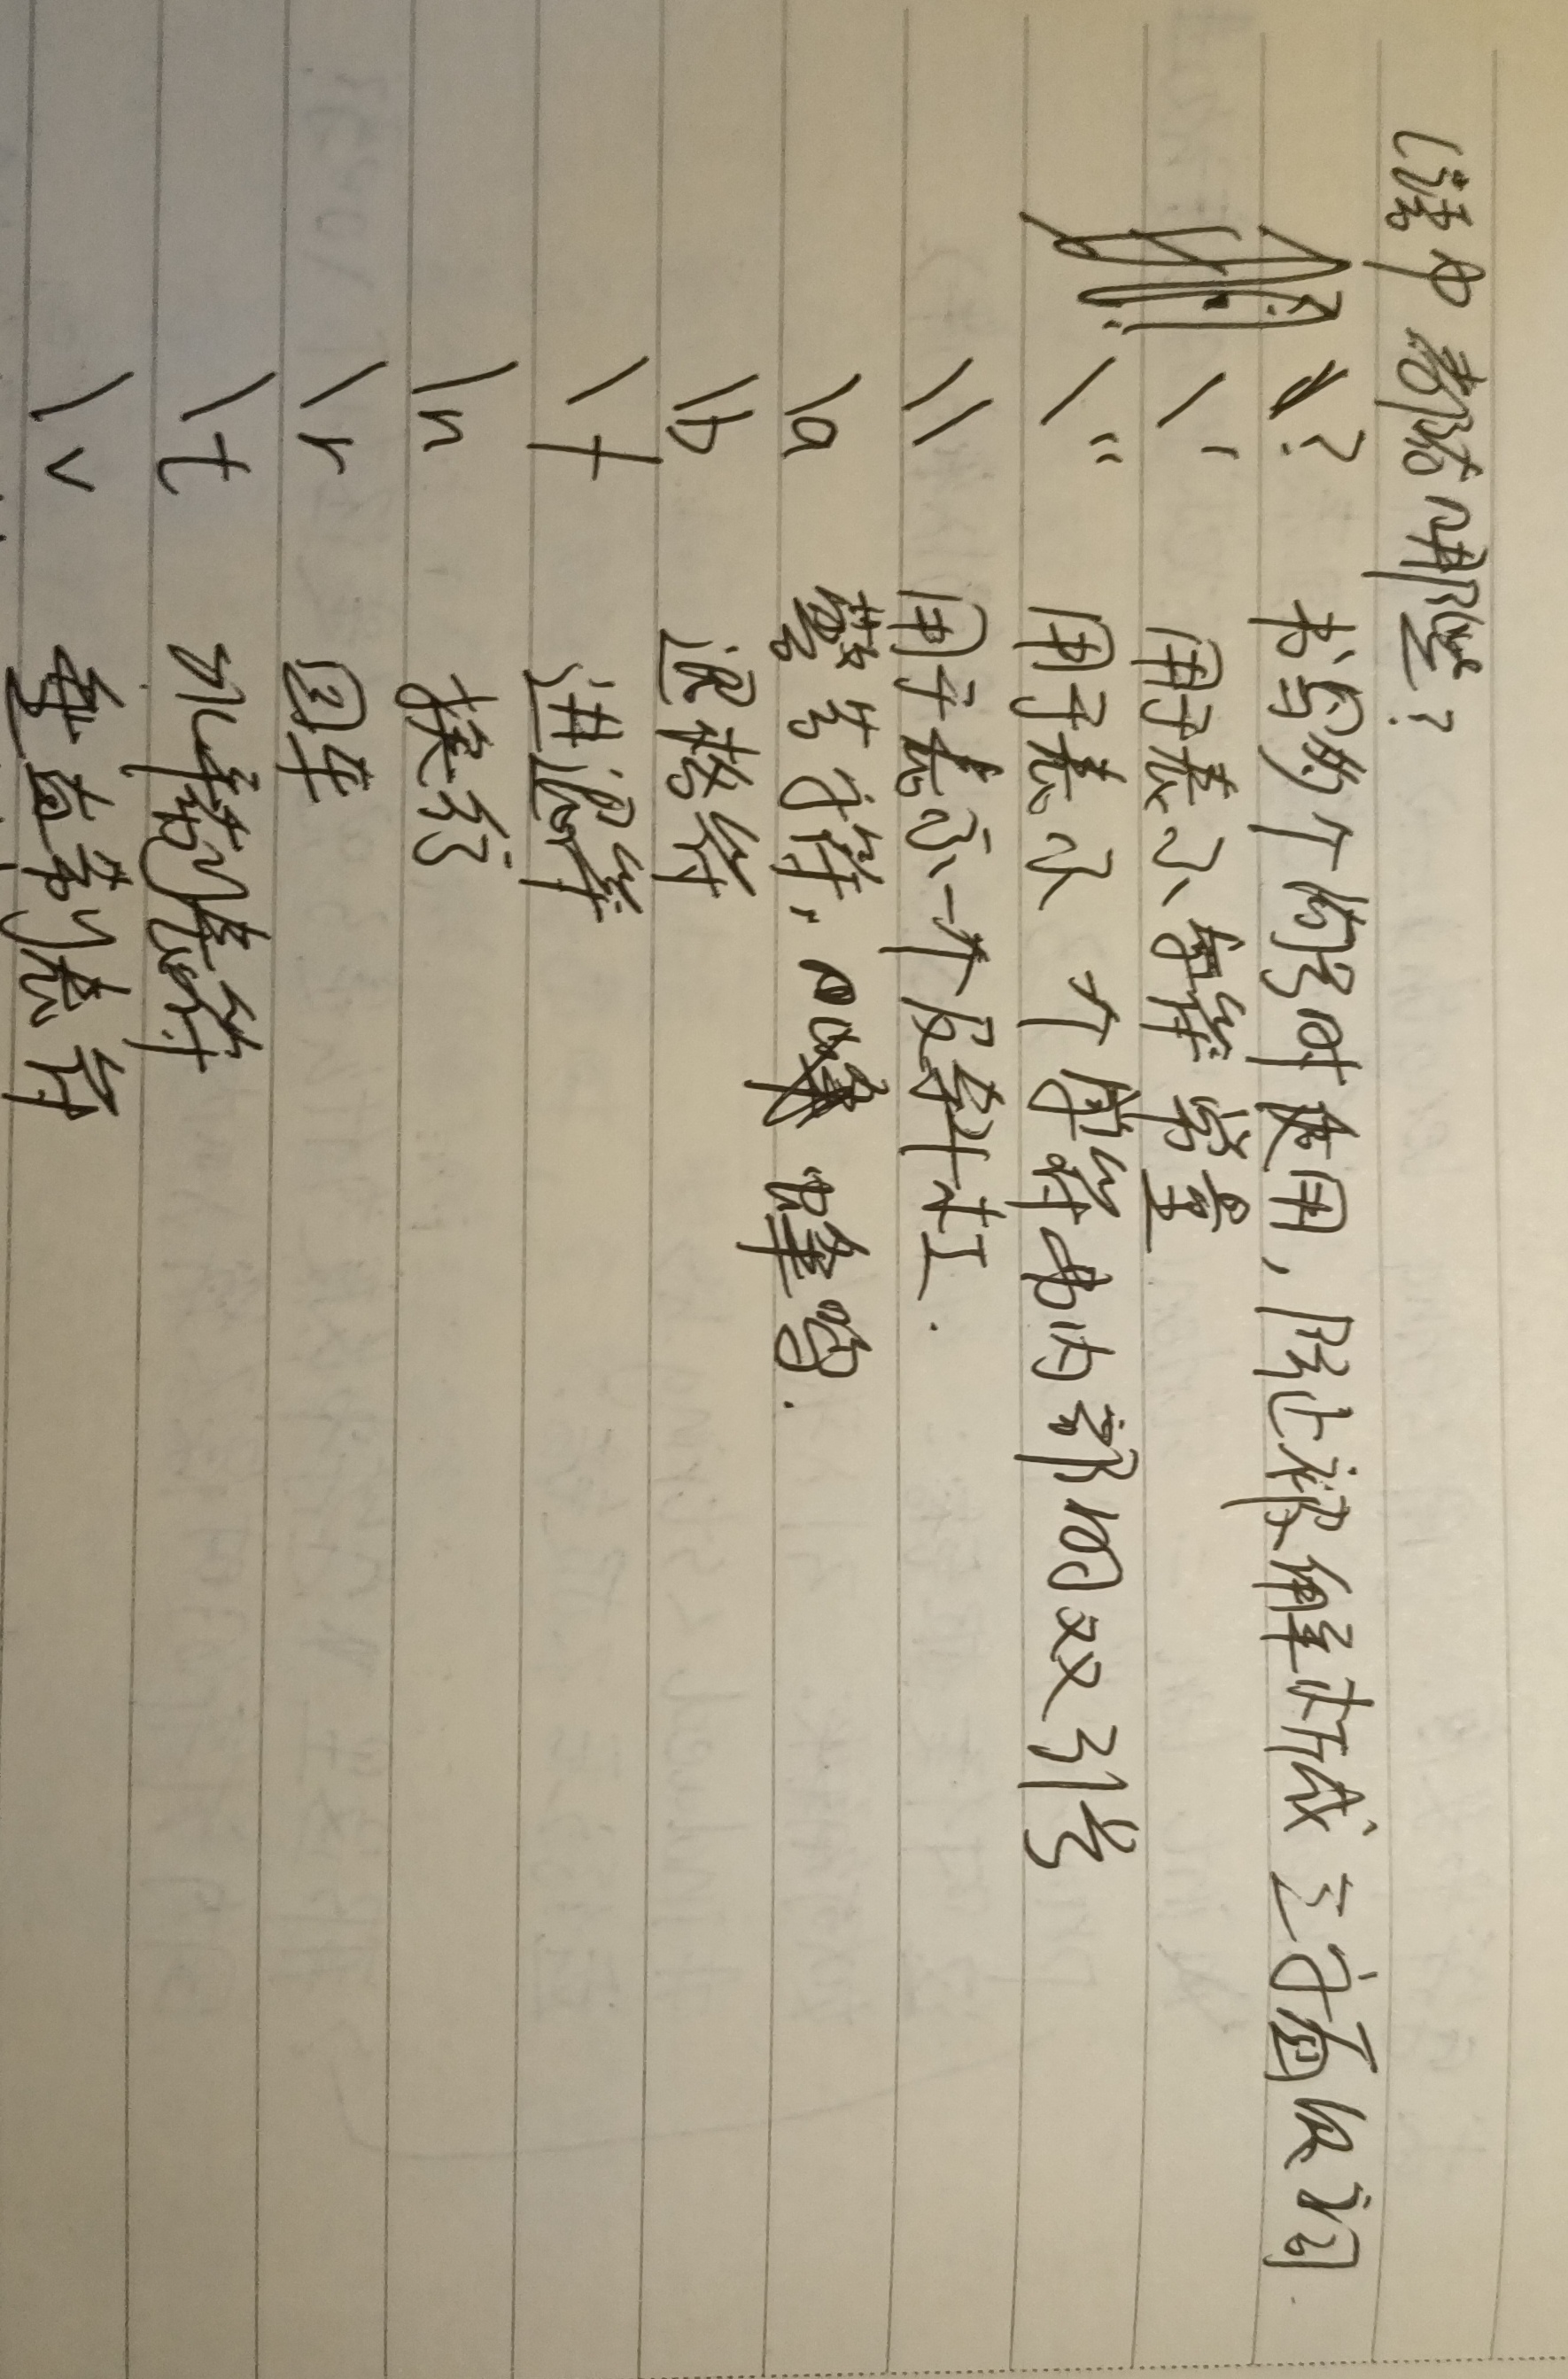 语中都有哪些?
\? 书写多个问号时使用,防止被解析成三字母词.
\' 用于表示字符常量
\" 用于表示 个字符串内部的双引号
\\ 用于表示一个反斜杠.
\a 警告字符, 蜂鸣.
\b 退格符
\f 进纸符
\n 换行
\r 回车
\t 水平制表符
\v 垂直制表符